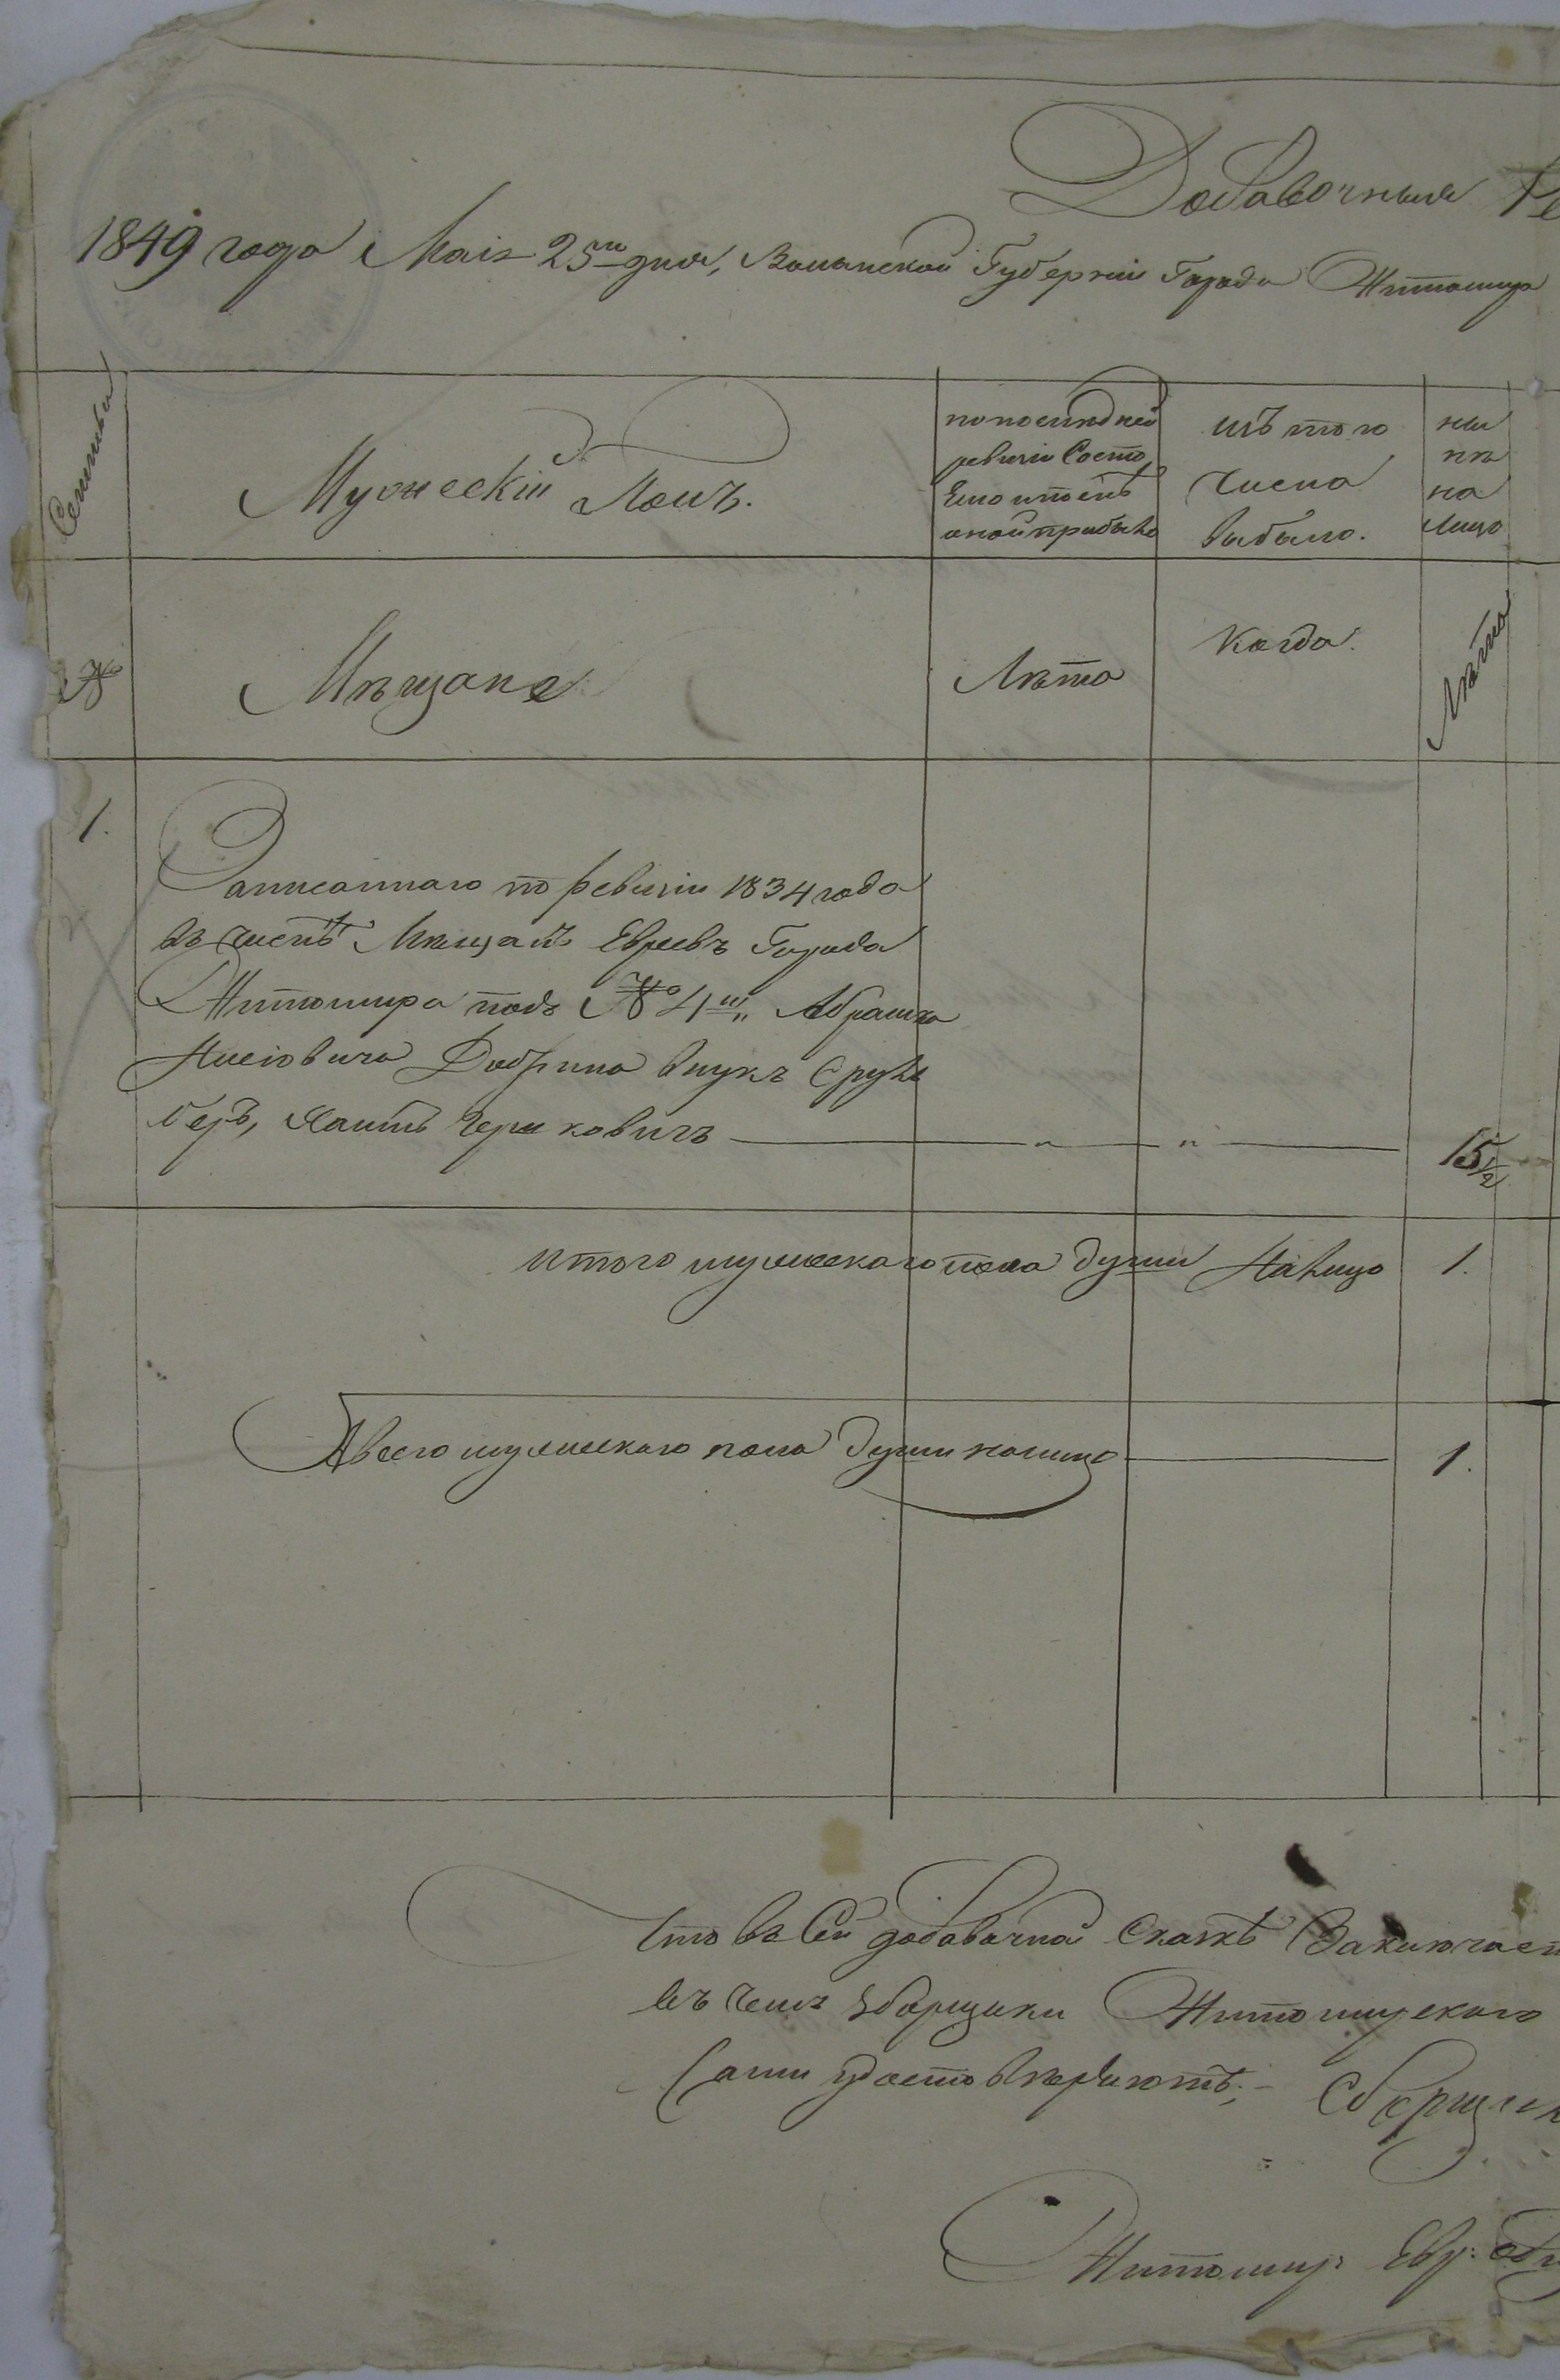 Добавочная Ре
1849 года Маія 25го дня, Волынской Губерніи Города Житомира
Семьи
Мужескій Полъ.
по последней
ревизіи Состо
яло и после
оной прибыло
изъ того
числа
выбыло.
ны
нѣ
на
лицо
№
Мѣщане
Лѣта
Когда.
Лѣта
1.
Записаннаго по ревизіи 1834 года
въ числѣ Мѣщанъ Евреевъ Города
Житомира подъ № 4м Абрамка
Лейбовича Добрина внукъ Сруль
беръ, Гершковичъ — " — " — 15 1/2
Итого мужескаго пола души Налицо 1.
А всего мужескаго пола души налицо — 1.
Что въ Сей добавочной Сказкѣ Заключает
въ чемъ Зборщики Житомирскаго
Сами удостовѣряютъ; — Сборщик
Житомир: Евр: Общ